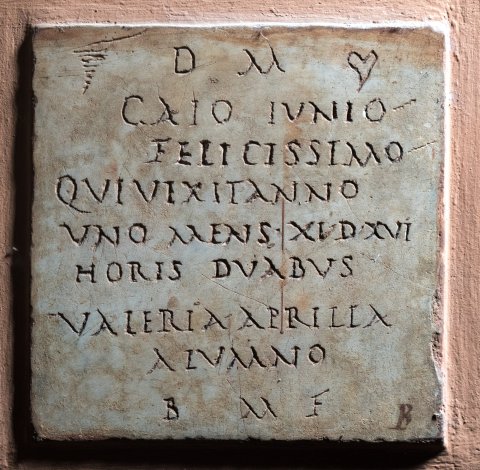 D M
CAIO IUNIO
FELICISSIMO
QUI UIXIT ANNO
UNO MENS·XI·D·XVI
HORIS DVABVS
VALERIA·APRILLA
ALUMNO
B M F
B